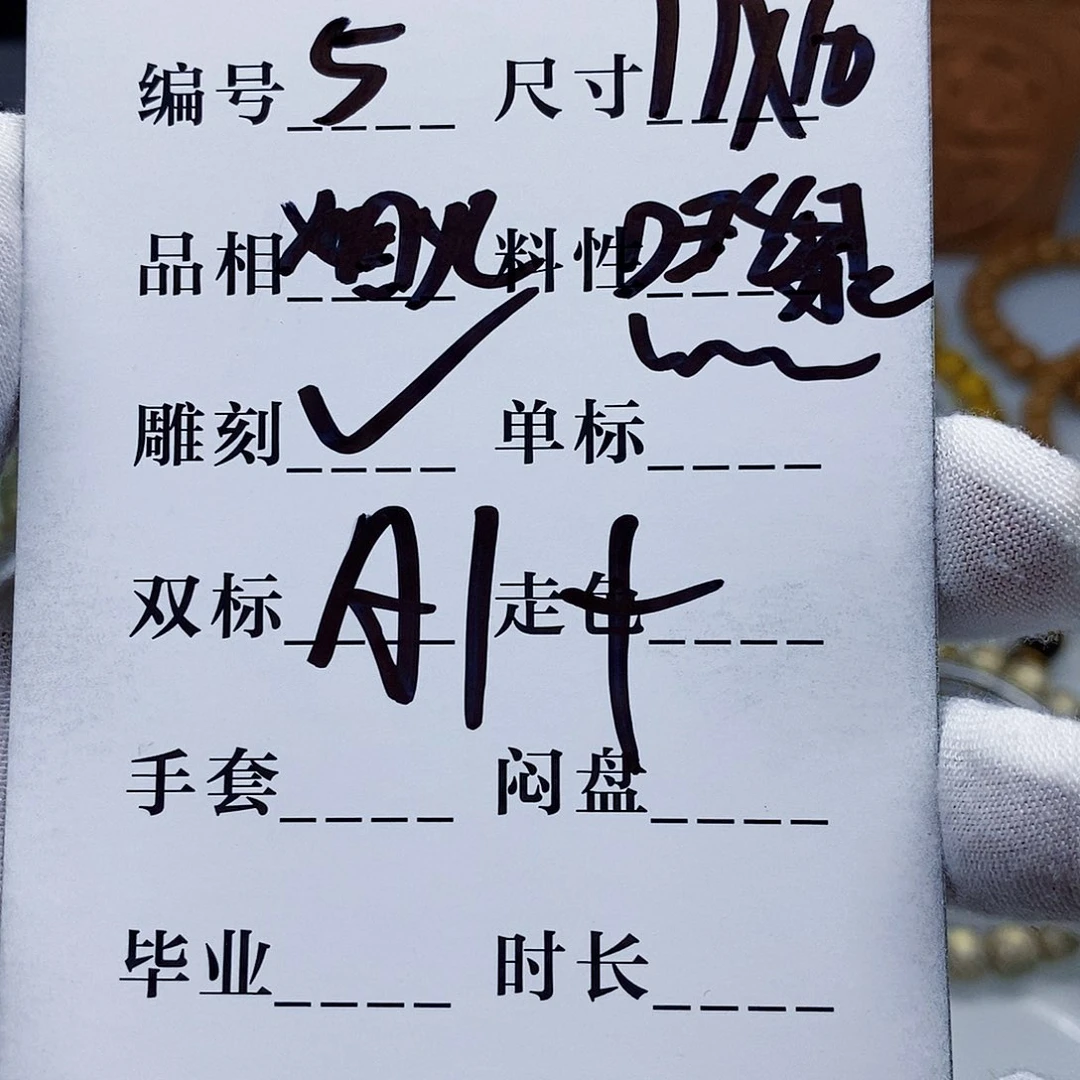 编号 5 尺寸 11X10
品相 料性
雕刻 ✓ 单标
双标 A1+ 走色
手套 闷盘
毕业 时长